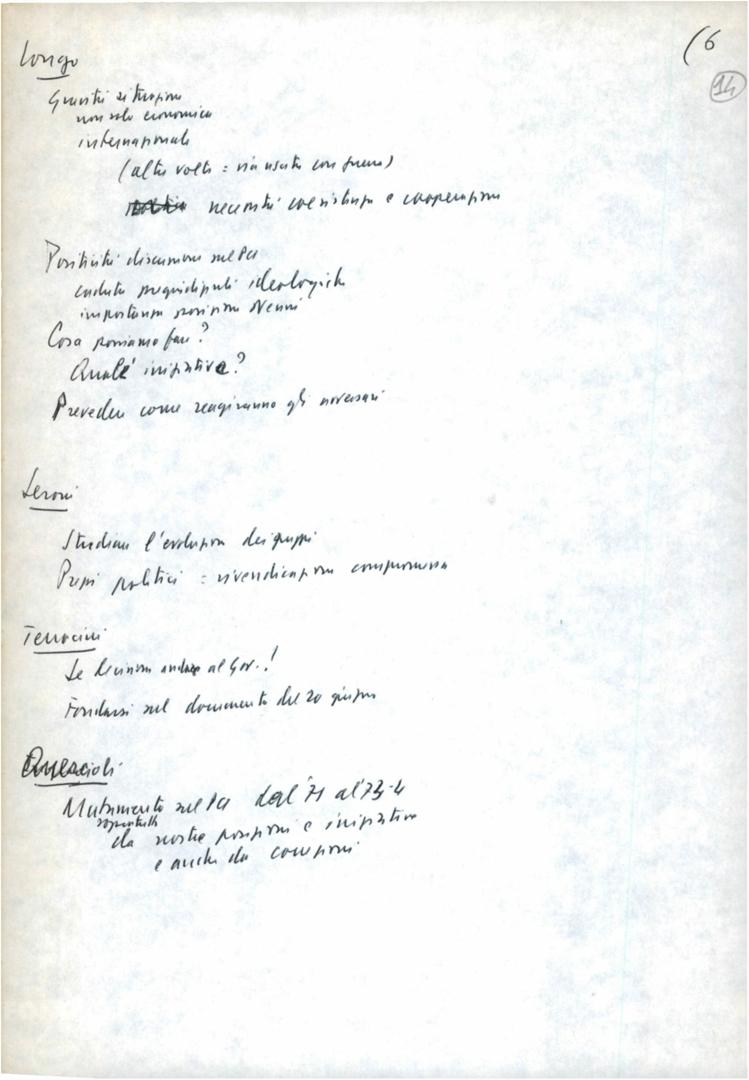 (6
14
Longo
Gravità situazione
non solo economica
internazionale
(altre volte = via uscita con guerra)
necessità coesistenza e cooperazione
Positività discussione sul Pci
caduta pregiudiziali ideologiche
importanza posizione Nenni
Cosa possiamo fare?
Quale iniziativa?
Prevedere come reagiranno gli avversari
Seroni
Studiare l'evoluzione dei gruppi
Prezzi politici = rivendicazione compromessa
Terracini
Se decisione andare al Gov..!
Fondarsi sul documento del 20 giugno
Quercioli
Mutamento sul Pci dal '71 al '73-4
soprattutto
da nostre posizioni e iniziative
e anche da